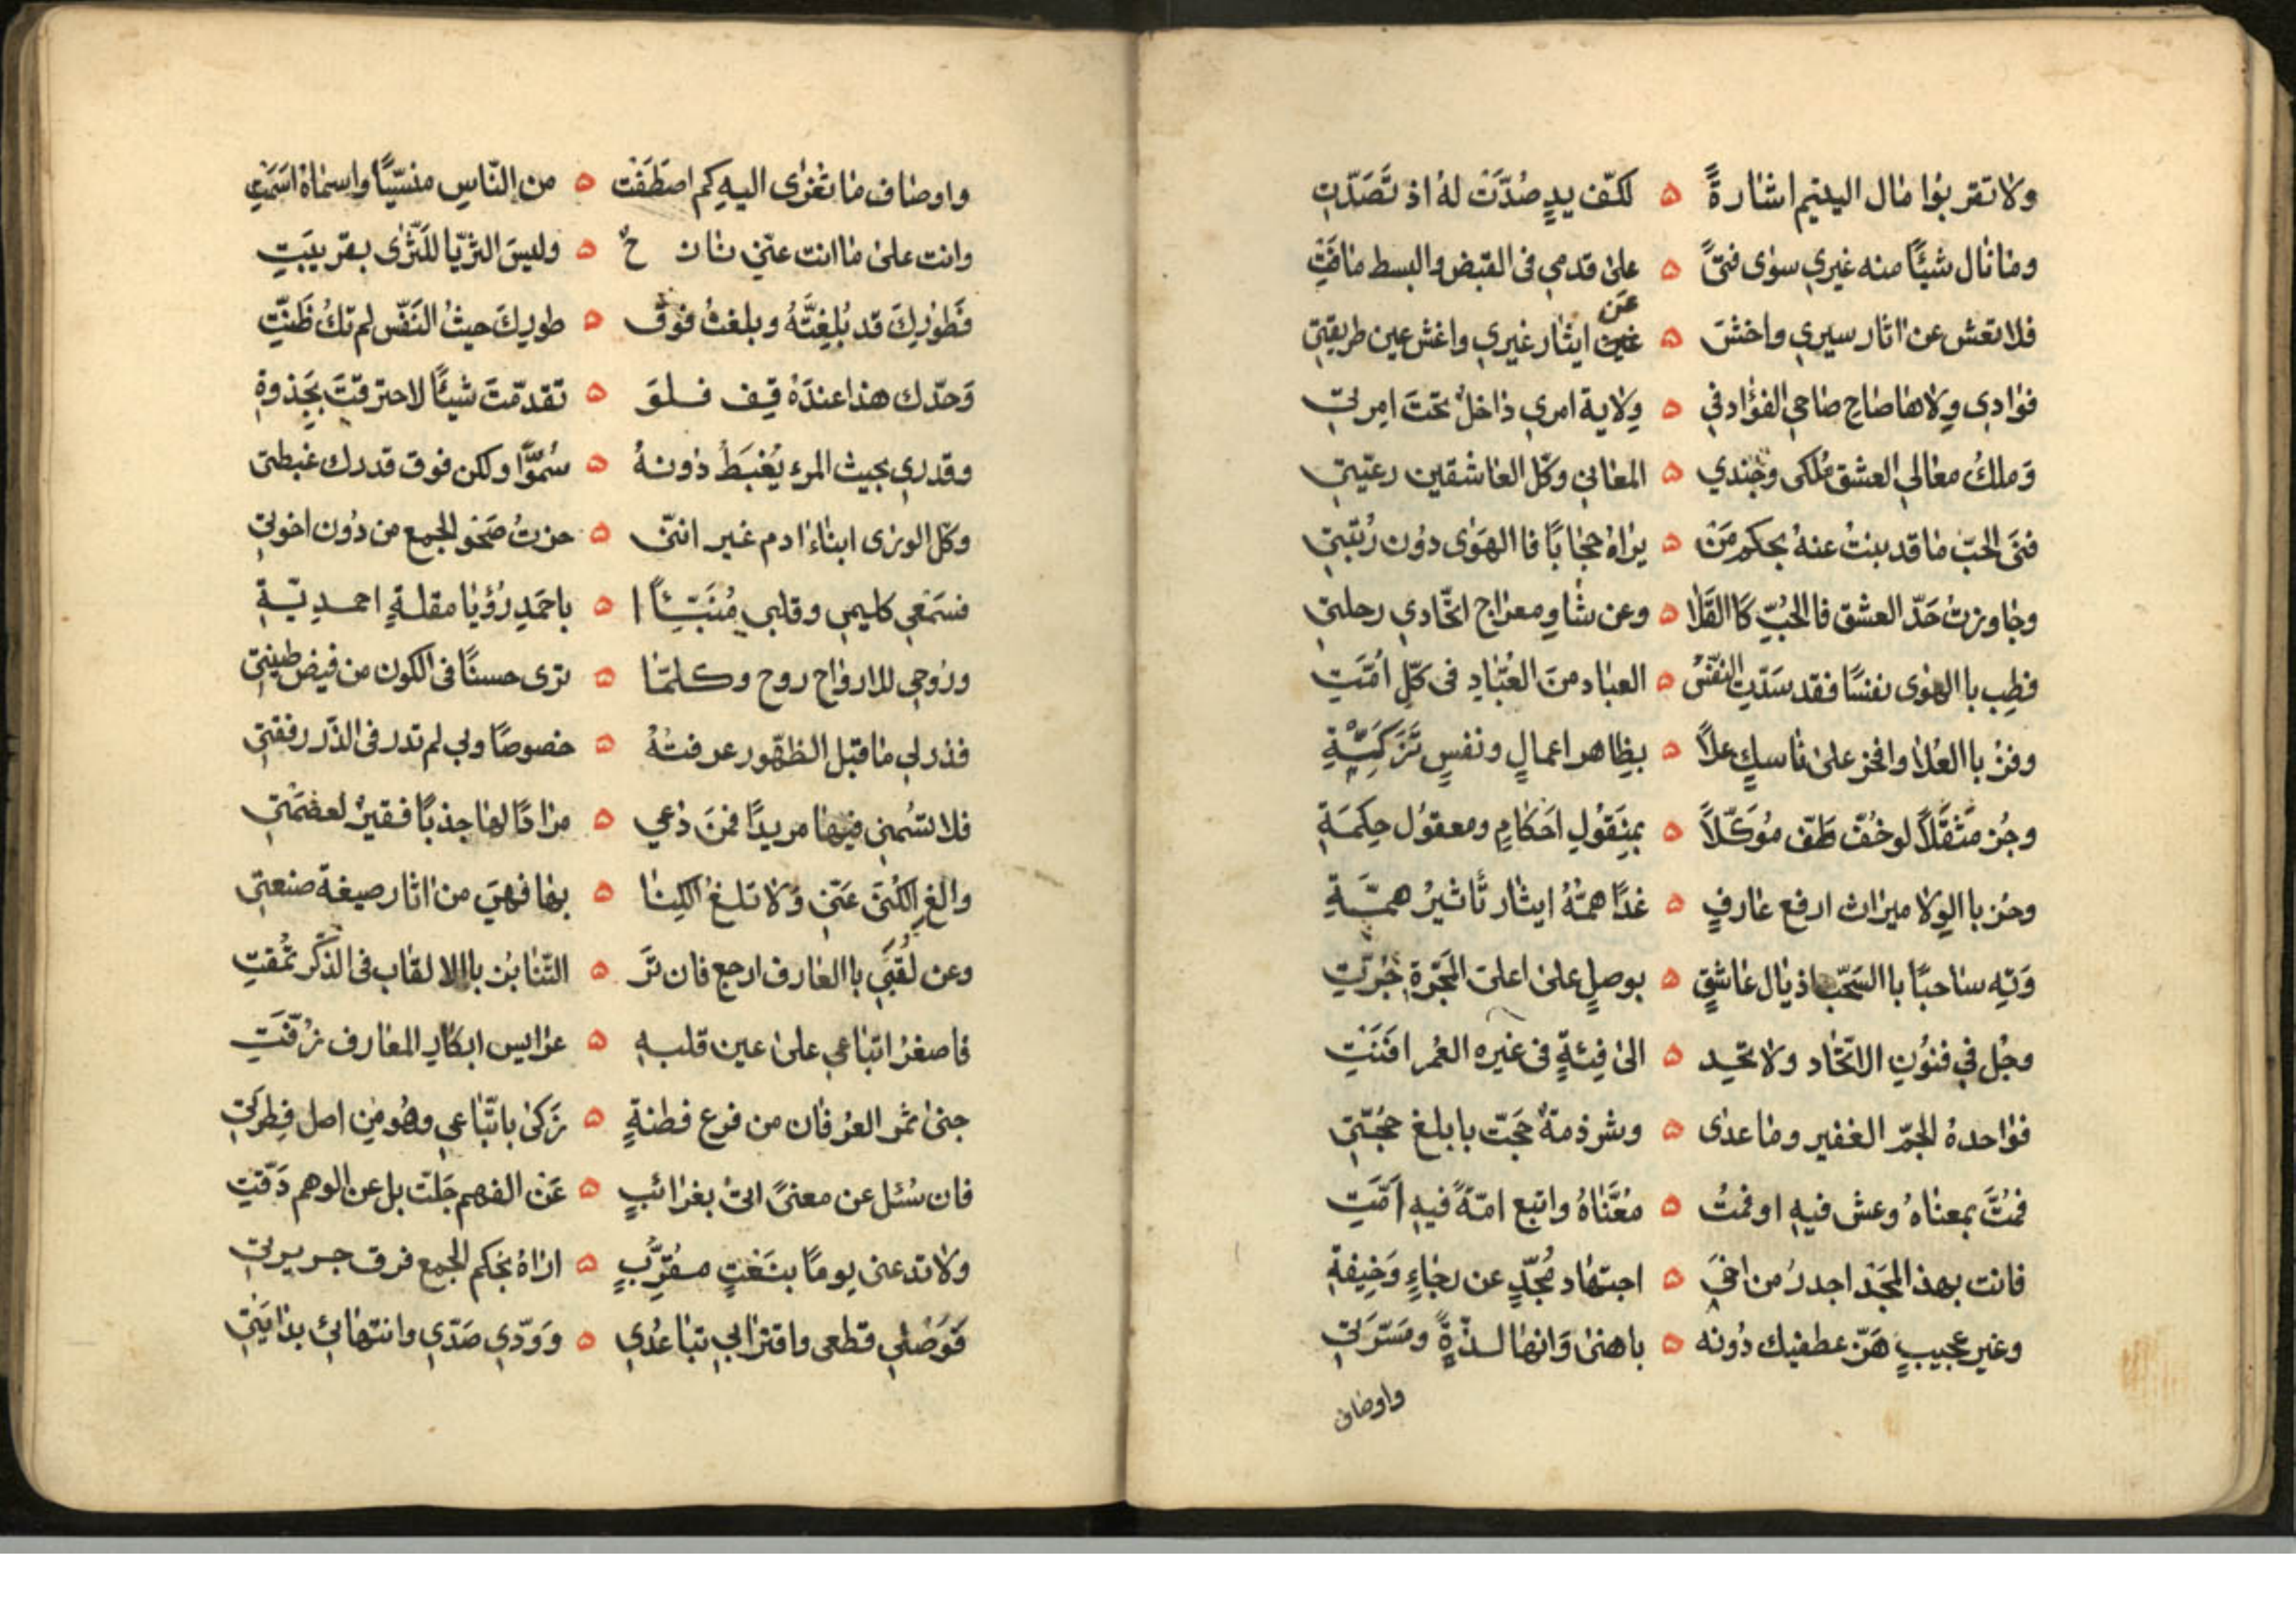 ولا تقربوا مال اليتيم اشارةً ه لكفّ يدٍ صُدَّتْ لهُ اذ تَصَدَّتِ
وما نال شيئًا منه غيري سوى فتىً ه على قدمي في القبض والبسط ما فَتِيْ
عَن
فلا تعش عن اثار سيري واخشَ ه غين ايثار غيري واغش عين طريقتي
فؤادي ولاها صاح صاحي الفؤاد في ه ولاية امري داخلٌ تحتَ امرتي
وَملكُ معالي العشق مُلكي وجُندي ه المعاني وكلّ العاشقين رعيّتي
فتَى الحبّ ما قد بنتُ عنهُ بحكم مَنْ ه يراهُ حجابًا فا الهَوى دون رُتبتي
وجاوزتُ حَدّ العشق فا الحُبِّ كا القَلا ه وعن شاوِ معراج اتّحادي رحلتي
فطِب با الهوى نفسًا فقد سَدّتِ النفْسُ ه العباد منَ العُبّادِ في كلّ امَّتِ
وفزْ با العُلا وافخر على ناسكٍ علاَ ه بظاهر اعمالٍ ونفسٍ تَزَكَّيَّةِ
وجُز مثقَّلاً لو خُفّ طَفّ مُوَكّلاً ه بمنقولِ احَكامٍ ومعقوُل حِكمَةِ
وحز با الوِلا ميراث ارفع عارفٍ ه غدًا همّهُ ايثار تأثيرُ همّةِ
وَتِه ساحبًا با السَحْب اذيال عاشقٍ ه بوصلٍ على اعلى المَجَرّةِ جُرّتِ
وجُل في فنُونِ الاتّحاد ولا تحِد ه الى فِئةٍ في غيره العُمر افنَتِ
فواحدهُ الجمّ الغفير وما عدى ه وشرذمةٌ حَجّت بابلغ حجُّتي
فمُتَّ بمعناهُ وعش فيهِ او فمُتُ ه مُعَنّاهُ واتبع امّةً فيهِ اَمّتِ
فانت بهذ المجَد اجدرُ من اخيَ ه اجتهاد مُجّدٍ عن رجاءٍ وَخِيفةٍ
وغير عجيبٍ هَزّ عطفيك دُونه ه باهنى وَانها لذّةً ومَسَرّتي
واوصاف
واوصاف ما تغزى اليهِ كم اصطَفَت ه من النّاسِ منسيًّا واسماهُ اسَمَتِ
وانت على ما انت عنّي نازحٌ ه وليسَ الثريّا للثَّرى بقريبَتِ
فَطُورُكَ قد بُلِغتَّهُ وبلغتُ فوقَ ه طورِكَ حيثُ النَّفْس لم تكُ ظَنّتِ
وَحدّك هذا عندَهُ قِف فلوَ ه تقدمّتَ شيئًا لاحترقتَ بجَذوةٍ
وقدري بحيث المرء يُغبَطُ دونهُ ه سُموًّا ولكن فوق قدرك غبطتي
وكلّ الورى ابناءُ ادم غير انّنى ه حزتُ صَحْو الجمع من دُون اخوتي
فسَمْعِي كليمي وقلبي مُنَبّئًا ه باحَمَدِ رُؤيا مقلةٍ احمديّةٍ
ورُوحي للارواح روح وكلمّا ه ترى حسنًا في الكون من فيض طينتي
فذر لي ما قبل الظهّور عرفتُهُ ه خصوصًا وبي لم تدر في الذّر رفقتي
فلا تسُمني فيها مريدًا فمَنَ دُعي ه مرادًا لها جذبًا فقيرٌ لعصْمَتي
والغ الكُنَى عَنّي وَلا تلغ الكنا ه بها فهيَ من اثار صيغة صنعتي
وعن لُقبَي با العارف ارجع فان ترَ ه التّنابُز باالالقاب في الذّكر تُمقتِ
فاصغرُ اتباعي على عين قلبهِ ه عرايس ابكارِ المعارف زُفّتِ
جنى ثمر العُرفان من فرع فطنةٍ ه زَكى باتّباعي وهُو من اصل فِطرَتي
فان سُئل عن معنىً اتىْ بغرائبٍ ه عَن الفهم جَلت بل عن الوهم دَقّتِ
ولا تدعنى يومًا بنَعْتٍ مقَرَّبٍ ه اراهُ بحُكم الجمع فرق جريرتي
فَوَصْلي قطعى واقترابي تباعُدي ه وَوَدّي صَدّي وانتهائي بدايَتي